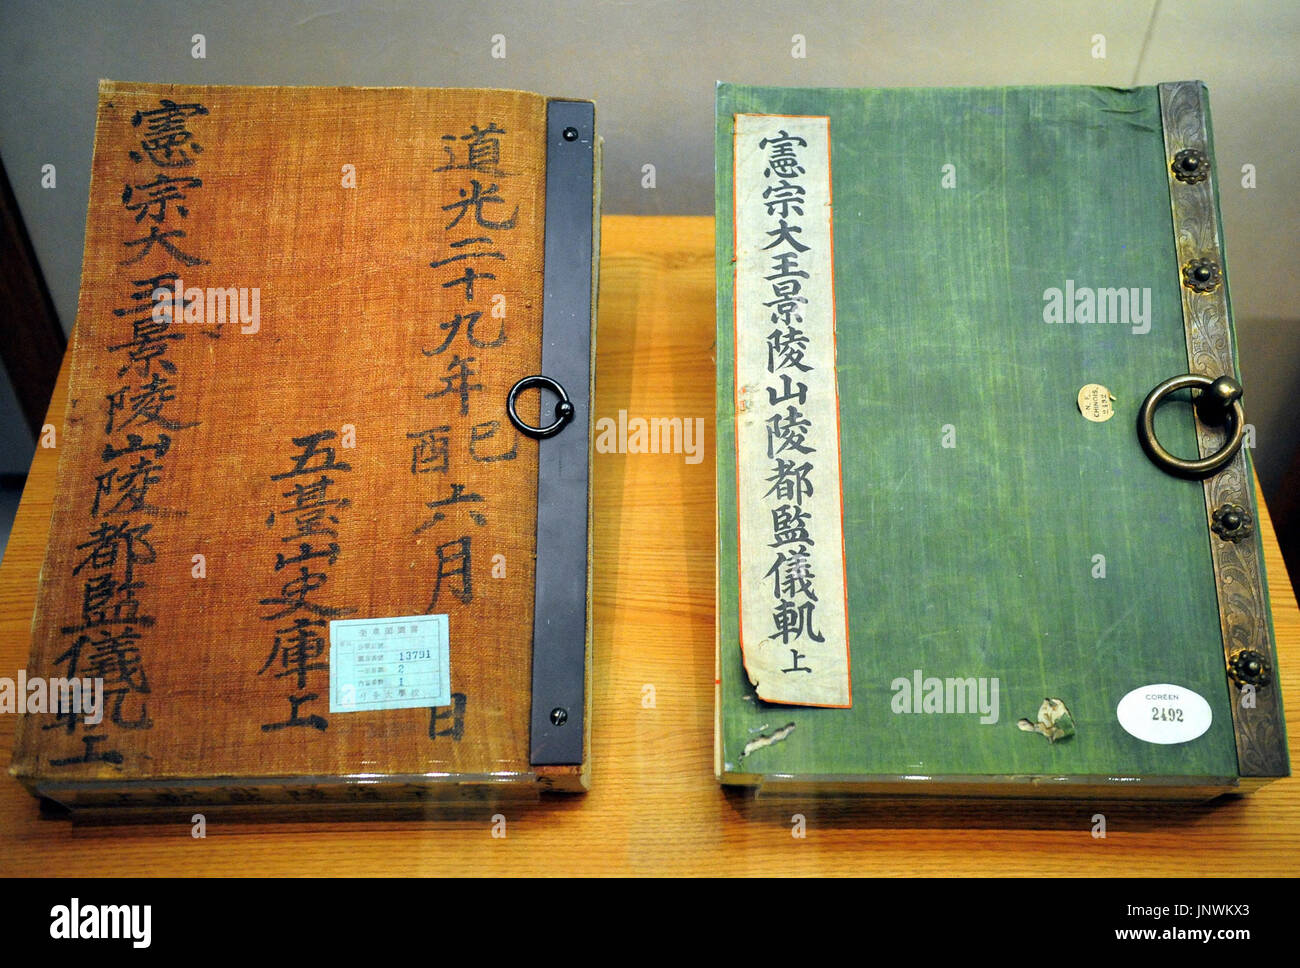 道光二十九年己酉六月 日
五臺山史庫上
憲宗大王景陵山陵都監儀軌上
13791
2
1
憲宗大王景陵山陵都監儀軌 上
N. F.
CHINOIS.
2492
COREEN
2492
alamy
alamy
Image ID: JNWKX3
www.alamy.com